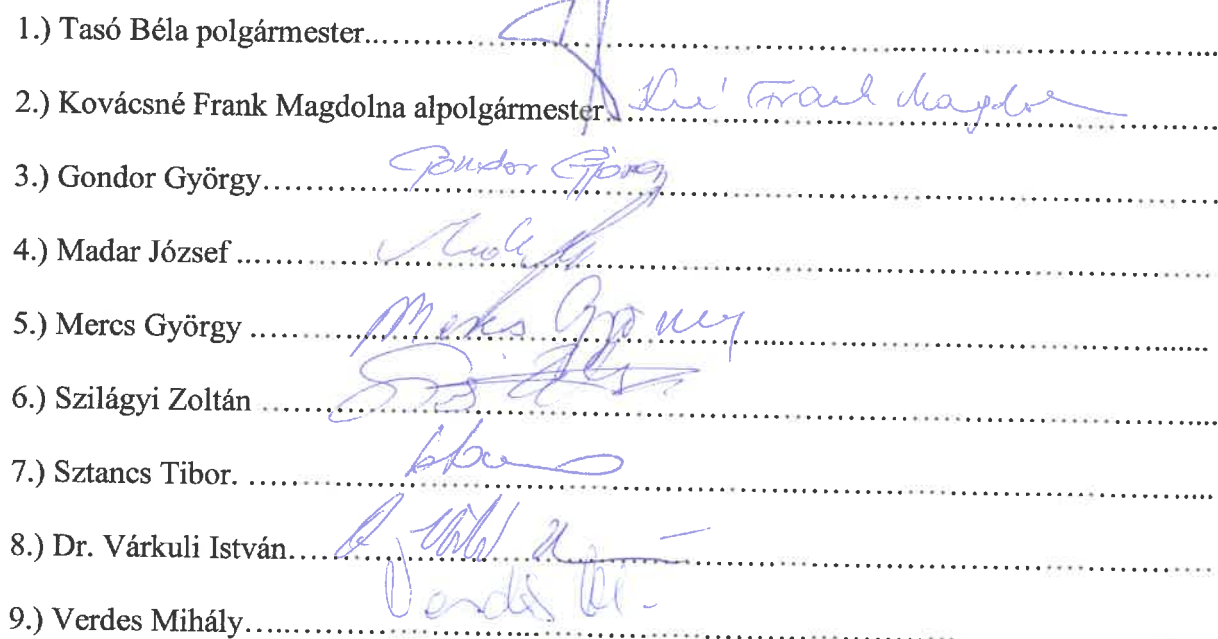 1.) Tasó Béla polgármester
2.) Kovácsné Frank Magdolna alpolgármester Kné Frank Magdolna
3.) Gondor György Gondor György
4.) Madar József
5.) Mercs György Mercs György
6.) Szilágyi Zoltán
7.) Sztancs Tibor.
8.) Dr. Várkuli István
9.) Verdes Mihály Verdes M.